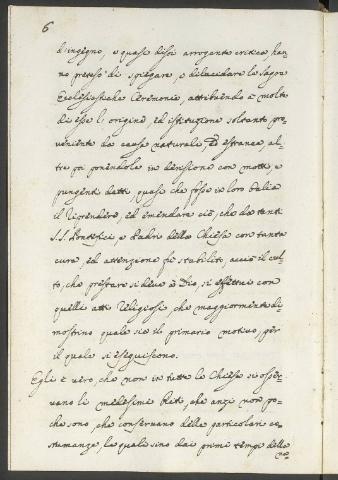 6
d'ingegno, e quasi dissi arrogante critica, han-
no preteso di spiegare, e dilucidare le Sagre
Ecclesiastiche Ceremonie, attribuendo a molte
di esse l'origine, ed istituzione soltanto pro-
veniente da cause naturali, ed estranee, al-
tre poi ponendole in derisione con motti, e
pungenti detti, quasi che fosse in loro balìa
il riprendere, ed emendare ciò, che da tanti
S.S. Pontefici, e Padri della Chiesa con tanta
cura, ed attenzione fù stabilito, acciò il cul-
to, che prestare si deve a Dio, si effettui con
quelli atti religiosi, che maggiormente di-
mostrino quale sia il primario motivo, per
il quale si eseguiscono.
Egli è vero, che non in tutte le Chiese si osser-
vano li medesimi Riti, che anzi non po-
che sono, che conservano delle particolari co-
stumanze, le quali sino dai primi tempi della